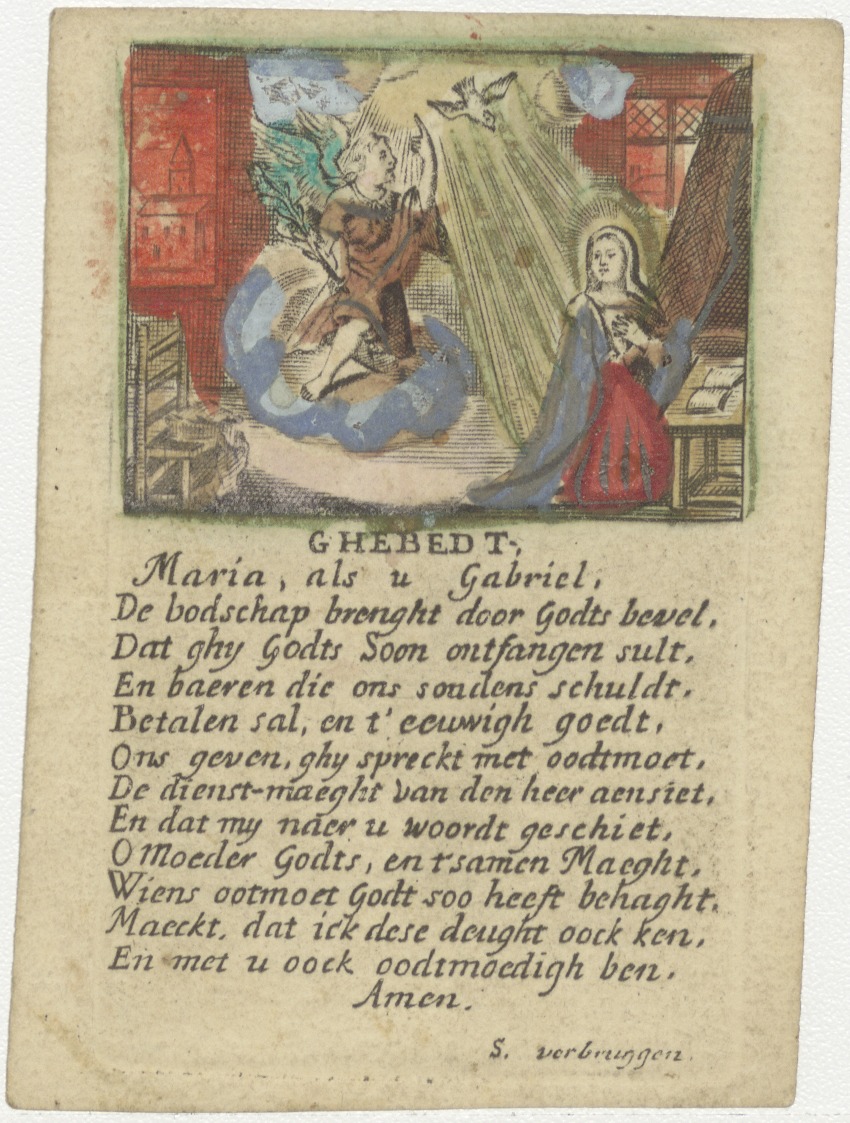 GHEBEDT,
Maria, als u Gabriel,
De bodschap brenght door Godts bevel,
Dat ghy Godts Soon ontfangen sult,
En baeren die ons sondens schuldt,
Betalen sal, en t'eeuwigh goedt,
Ons geven, ghy spreckt met oodtmoet,
De dienst-maeght van den heer aensiet,
En dat my naer u woordt geschiet,
O Moeder Godts, en t'samen Maeght,
Wiens ootmoet Godt soo heeft behaght,
Maeckt, dat ick dese deught oock ken,
En met u oock oodtmoedigh ben.
Amen.
S. verbruggen.